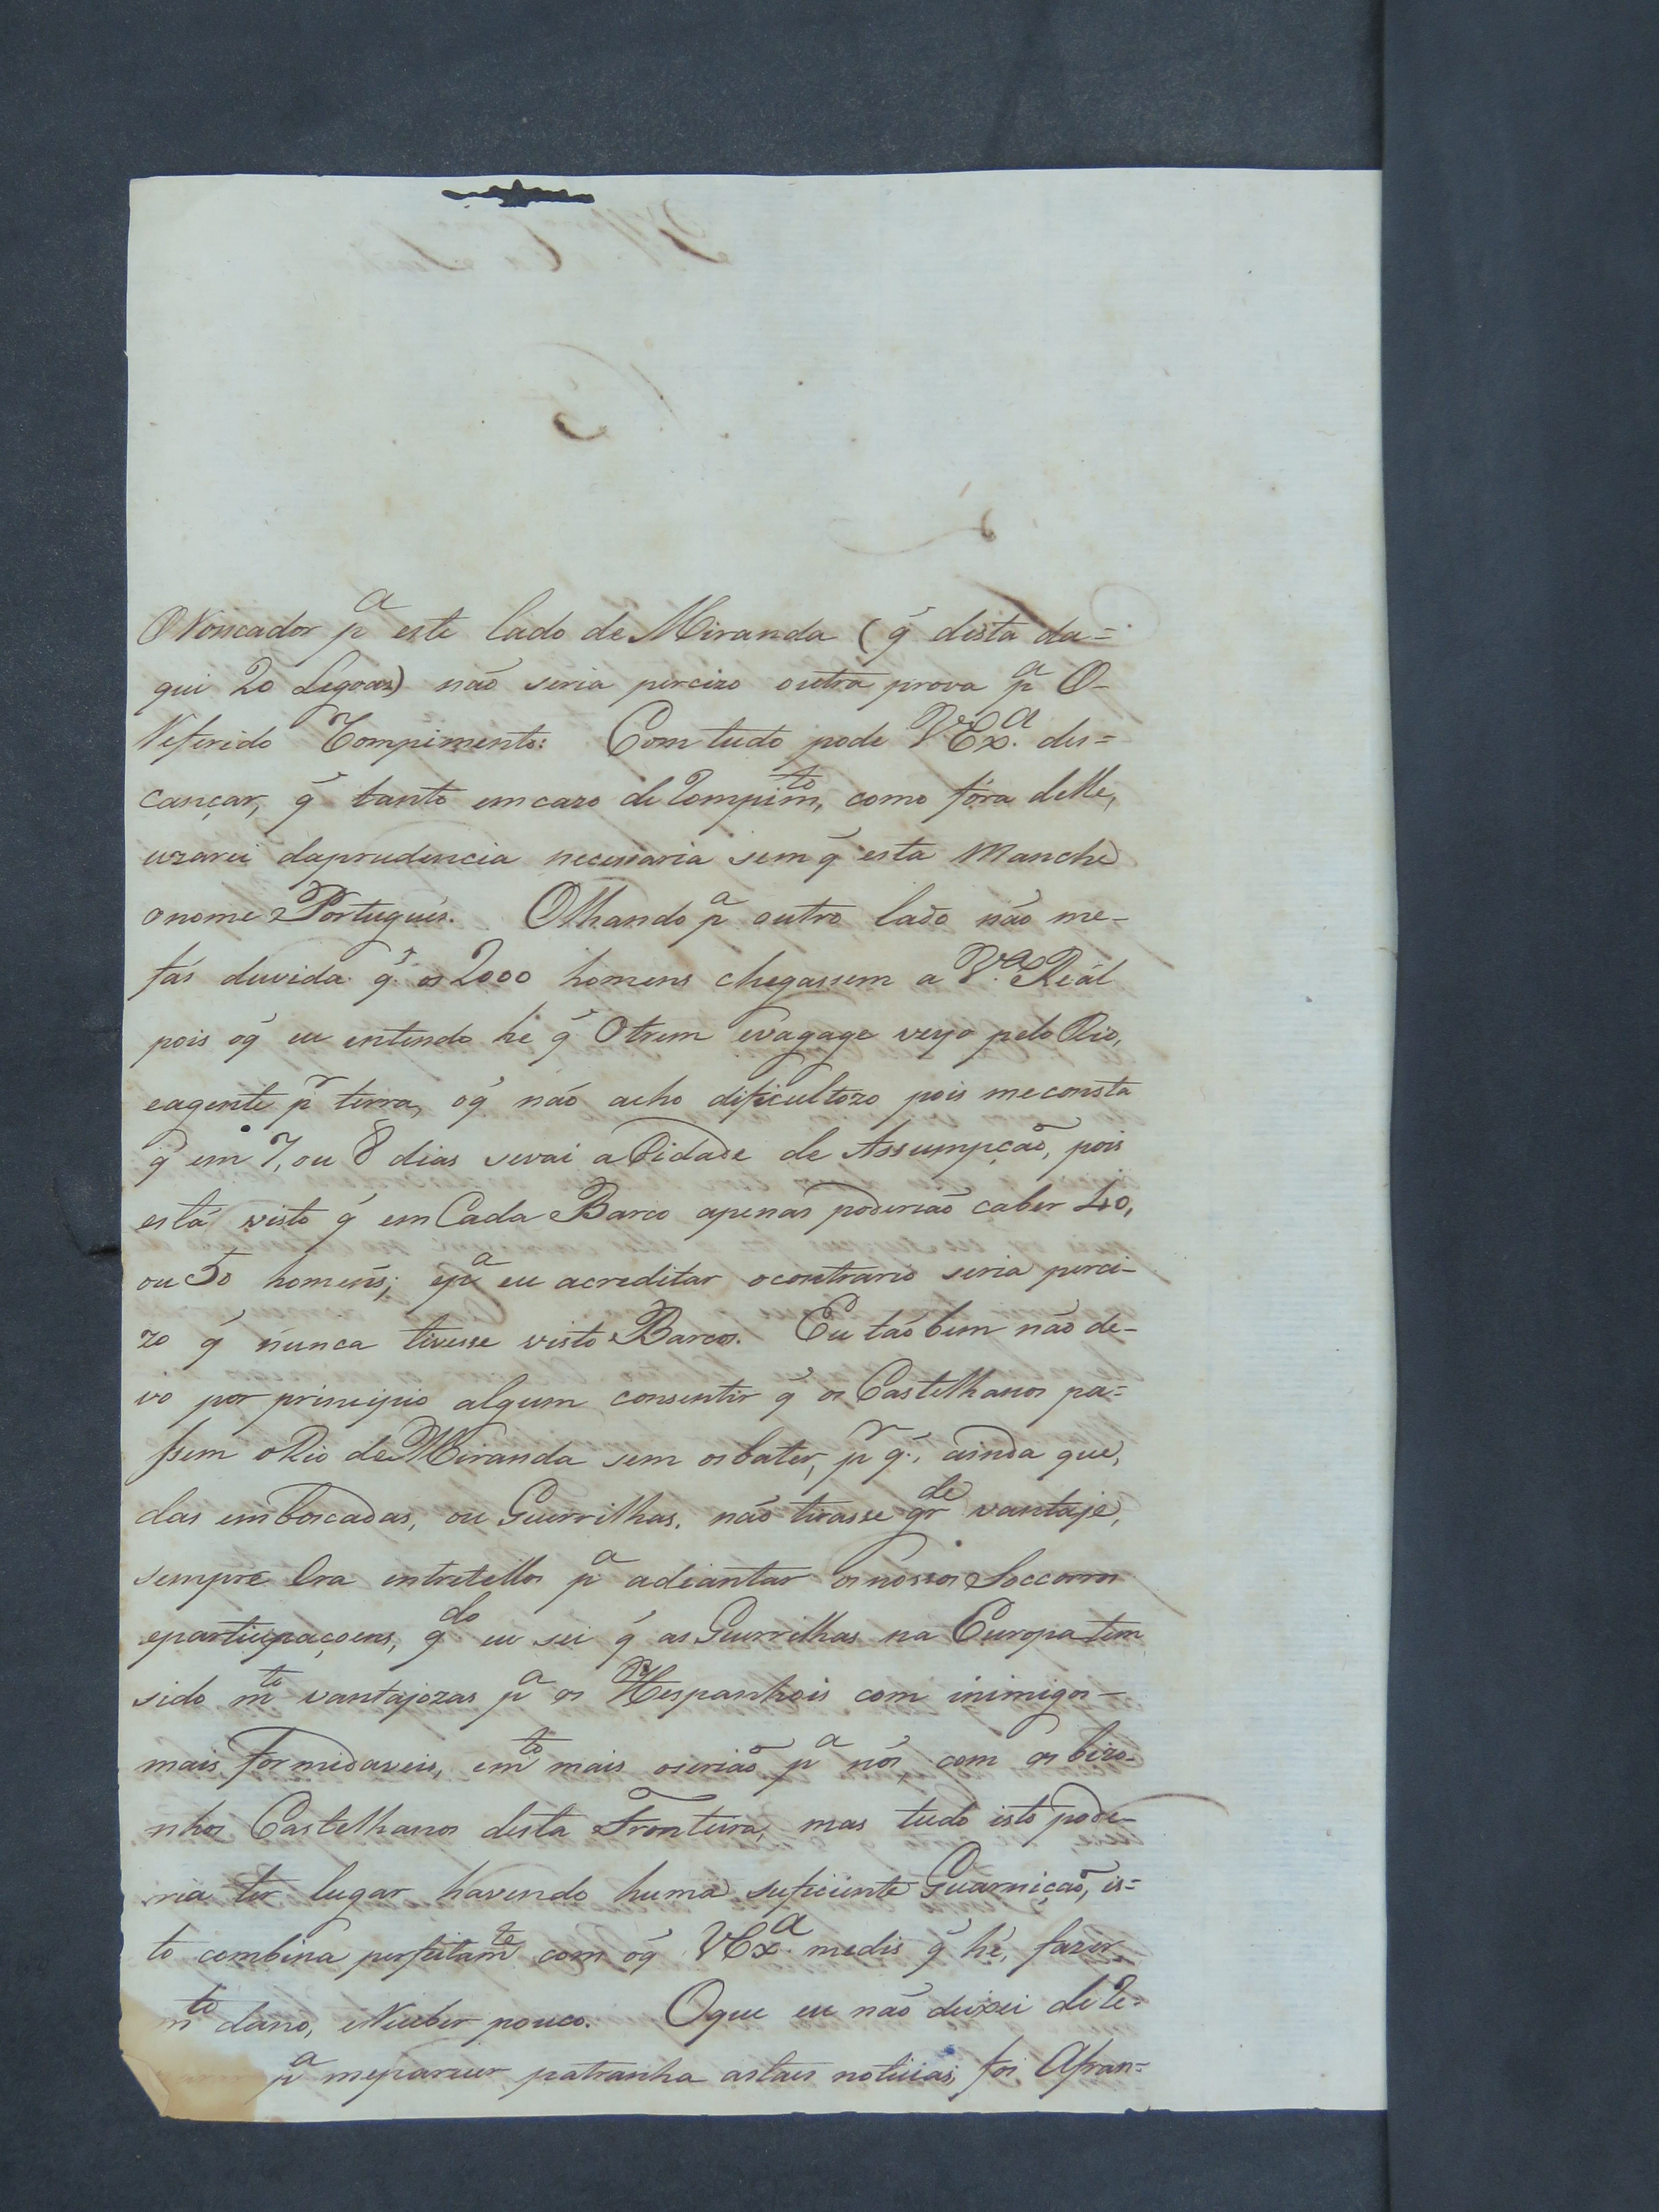 Roncador pª este lado de Miranda (q̃ dista da=
qui 20 Legoas) não seria percizo outra prova pª O-
Referido Rompimento: Com tudo pode VExª. des=
cançar, q̃ tanto em cazo de Rompimto, como fóra delle,
uzarei daprudencia necessaria sem q̃ esta Manche
o nome Portuguès. Olhando pª outro lado não me-
fás duvida q̃ os 2000 homens chegassem a Vª. Reál
pois oq̃ eu entendo he q̃ Otrem evagage veyo pelo Rio,
eagente pr terra, oq̃ não acho dificultozo pois me consta
q̃ em 7, ou 8 dias sevai a Cidade de Assumpção, pois
está visto q̃ em Cada Barco apenas poderião caber 40,
ou 50 homens; epª eu acreditar ocontrario seria perci-
zo q̃ nunca tivesse visto Barcos. Eu tão bem não de-
vo por principio algum consentir q̃ os Castelhanos pa=
ssem o Rio de Miranda sem os bater, pr q̃, ainda que,
das emboscadas, ou Guerrilhas, não tirasse grde vantaje,
sempre era entretellos pª adiantar os nossos Soccorros
eparticipaçoens, qdo eu sei q̃ as Guerrilhas na Europa tem
sido mto vantajozas pª os Hespanhois com inimigos-
mais formidaveis, emto mais oserião pª nós, com os bizo-
nhos Castelhanos desta Fronteira, mas tudo isto pode-
ria ter lugar havendo huma suficiente Guarnição, is=
to combina perfeitamte com oq̃ VExª. medis q̃ hé, fazer
mto dano, eReceber pouco. Oque eu não deixei de Re=
pª meparecer patranha astais noticias, foi Afran=